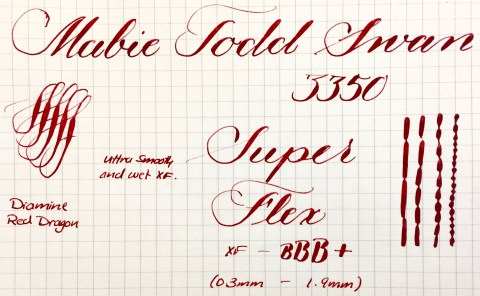 Mabie Todd Swan
3350
Ultra Smooth
and wet XF.
Super
Flex
XF – BBB+
(0.3mm – 1.9mm)
Diamine
Red Dragon